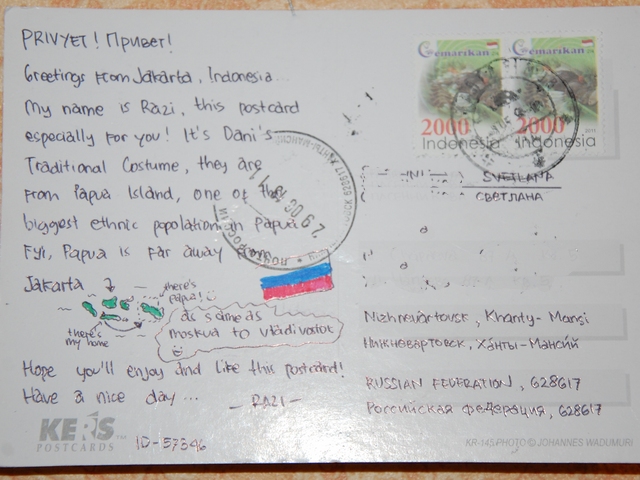 PRIVYET! Привет!
Greetings from Jakarta, Indonesia...
My name is Razi, this postcard
especially for you! It's Dani's
Traditional Costume, they are
From Papua Island, one of the
biggest ethnic popolation in Papua
FYI, Papua is far away
Jakarta
there's papua!
there's my home
as same as
moskva to vladivostot
Hope you'll enjoy and like this postcard!
Have a nice day...
- RAZI -
KERS
POSTCARDS
ID-57346
Gemarikan
Gemarikan
2000
2000
Indonesia
Indonesia
SVETLANA
СВЕТЛАНА
Nizhnevartovsk, Khanty-Mansi
Нижневартовск, Ханты-Мансий
RUSSIAN FEDERATION, 628617
Российская Федерация, 628617
KR-145 PHOTO © JOHANNES WADUMURI